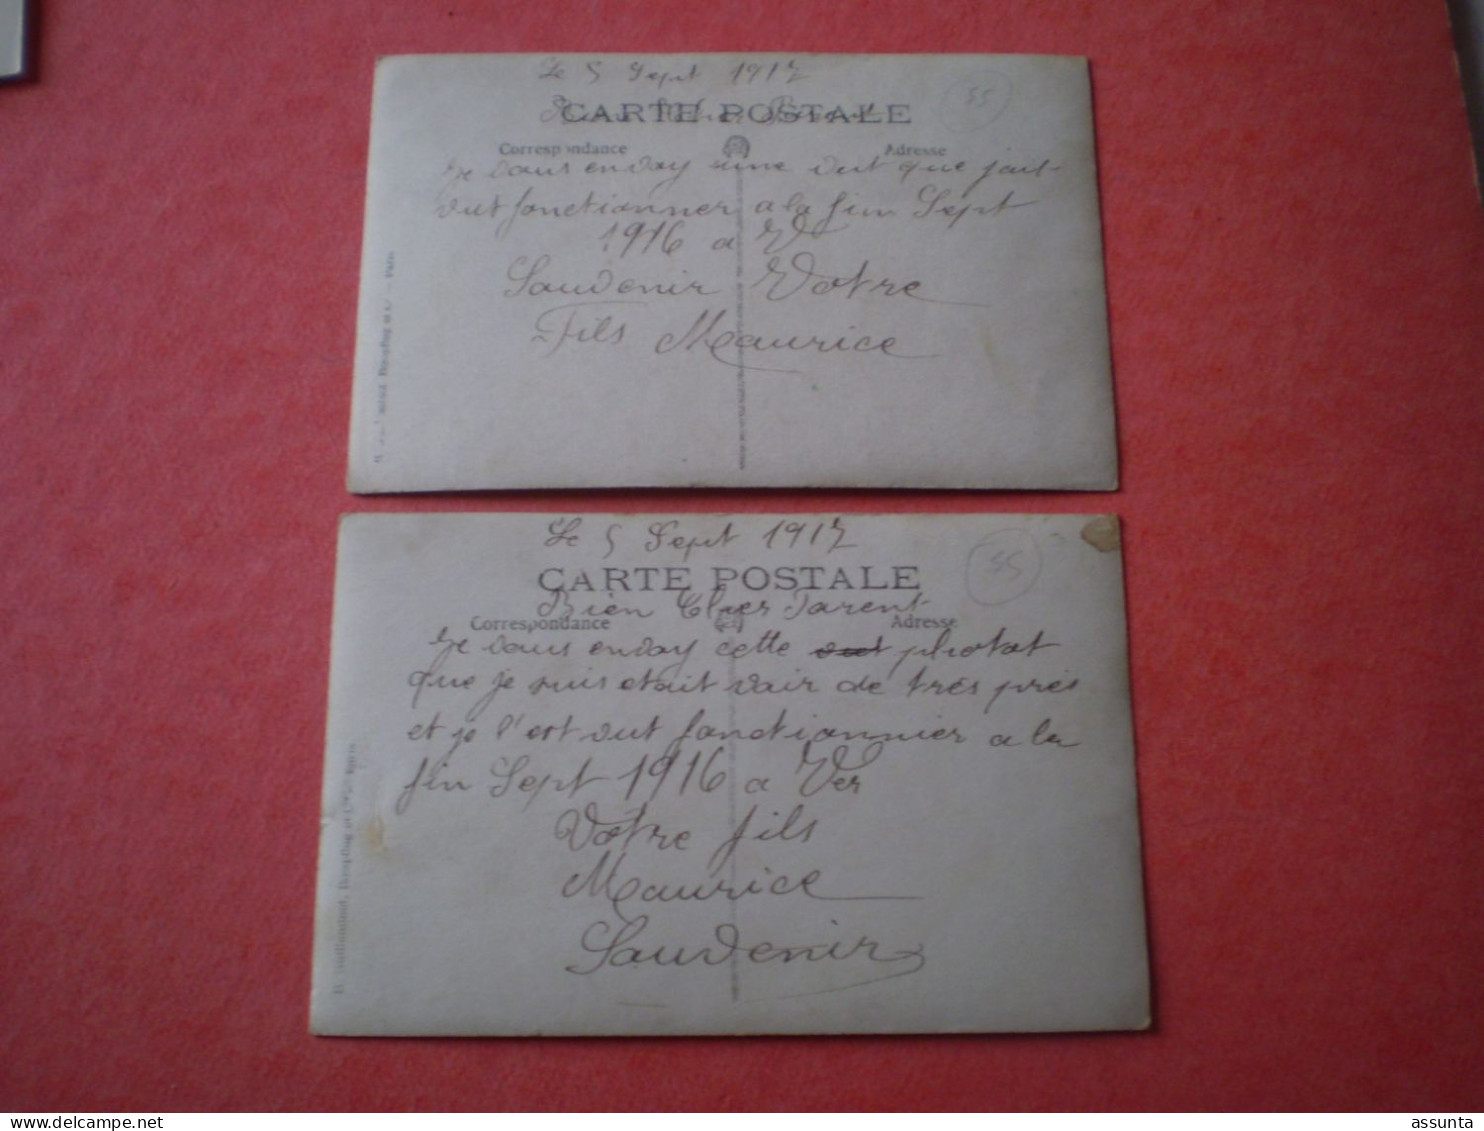 Le 5 Sept 1917
CARTE POSTALE
35
Correspondance Adresse
Je vous envoy une vut que jait
vut fonctionner a la fin Sept
1916 a
Souvenir Votre
Fils Maurice
Le 5 Sept 1917
CARTE POSTALE
35
Bien Cher Parent
Correspondance Adresse
Je vous envoy cette vut photot
que je suis etait voir de très près
et je l'est vut fonctionnier a la
fin Sept 1916 a Ver
Votre fils
Maurice
Souvenir
assunta